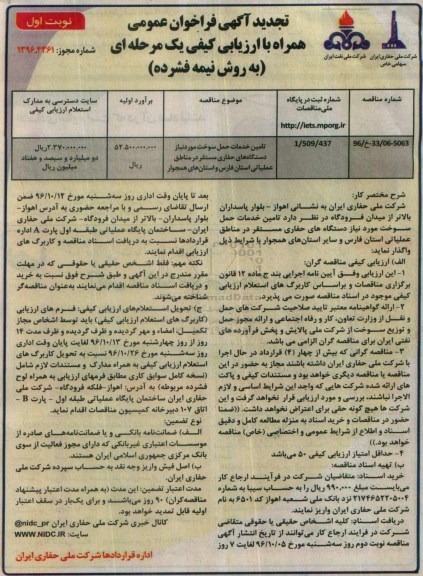 نوبت اول
تجدید آگهی فراخوان عمومی
همراه با ارزیابی کیفی یک مرحله ای
(به روش نیمه فشرده)
شماره مجوز: ۱۳۹۶.۴۳۶۱
شرکت ملی نفت ایران
شرکت ملی حفاری ایران
سهامی خاص
شماره مناقصه
شماره ثبت در پایگاه ملی مناقصات
http://iets.mporg.ir
موضوع مناقصه
برآورد اولیه
سایت دسترسی به مدارک استعلام ارزیابی کیفی
33/06-5063-خ/96
1/509/437
تامین خدمات حمل سوخت مورد نیاز دستگاه‌های حفاری مستقر در مناطق عملیاتی استان فارس و استان‌های همجوار
۵۲.۵۰۰.۰۰۰.۰۰۰ ریال
۲.۳۷۰.۰۰۰.۰۰۰ ریال
دو میلیارد و سیصد و هفتاد میلیون ریال
شرح مختصر کار:
شرکت ملی حفاری ایران به نشانی اهواز - بلوار پاسداران
بالاتر از میدان فرودگاه در نظر دارد تامین خدمات حمل
سوخت مورد نیاز دستگاه های حفاری مستقر در مناطق
عملیاتی استان فارس و سایر استان‌های همجوار با شرایط ذیل
واگذار نماید:
الف) ارزیابی کیفی مناقصه گران:
۱- این ارزیابی وفق آیین نامه اجرایی بند ج ماده ۱۲ قانون
برگزاری مناقصات و براساس کاربرگ های استعلام ارزیابی
کیفی موجود در اسناد مناقصه صورت می پذیرد.
۲- ارائه گواهینامه معتبر تایید صلاحیت شرکت های حمل
و نقل از وزارت تعاون، کار و رفاه اجتماعی و ارائه مجوز حمل
و توزیع سوخت از شرکت ملی پالایش و پخش فرآورده های
نفتی ایران برای مناقصه گران الزامی می باشد.
۳- مناقصه گرانی که بیش از چهار (۴) قرارداد در حال اجرا
با شرکت ملی حفاری ایران داشته باشند مجاز به حضور در این
مناقصه یا مناقصه دیگری نخواهد بود و مستندات کیفی و پاکت
های ارائه شده شرکت هایی که واجد این شرایط اساسی و لازم
الاجرا نباشند، بررسی و مورد ارزیابی قرار نخواهد گرفت و این
شرکت ها هیچ گونه حقی برای اعتراض نخواهد داشت. ((ضمنا
حضور در مناقصات و خرید اسناد به منزله مطالعه کامل و دقیق
اسناد و اطلاع از شرایط عمومی و اختصاصی (خاص) مناقصه
خواهد بود.))
۴- حداقل امتیاز ارزیابی کیفی ۵۰ می باشد
ب) تهیه اسناد مناقصه:
خرید اسناد: متقاضیان شرکت در فرآیند ارجاع کار
می‌بایست مبلغ ۹۹۰.۰۰۰ ریال را به حساب سیبا به شماره
۲۱۷۴۶۵۲۲۰۵۰۰۴ نزد بانک ملی شعبه اهواز کد ۶۵۰۱ به نام
شرکت ملی حفاری ایران واریز نمایند.
دریافت اسناد: کلیه اشخاص حقیقی یا حقوقی متقاضی
شرکت در فرایند ارجاع کار می‌توانند از تاریخ انتشار آگهی
مناقصه نوبت دوم روز سه‌شنبه مورخ ۹۶/۱۰/۰۵ لغایت ۷ روز
بعد تا پایان وقت اداری روز سه‌شنبه مورخ ۹۶/۱۰/۱۲ ضمن
ارسال تقاضای رسمی و با مراجعه حضوری به آدرس اهواز-
بلوار پاسداران- بالاتر از میدان فرودگاه- شرکت ملی حفاری
ایران- ساختمان پایگاه عملیاتی طبقه اول پارت A اداره
قراردادها نسبت به دریافت اسناد مناقصه و کاربرگ های
ارزیابی اقدام نمایند.
نکته مهم: فقط اشخاص حقیقی یا حقوقی که در مهلت
مقرر مندرج در این آگهی و طبق شرح فوق نسبت به خرید
و دریافت اسناد مناقصه اقدام می‌نمایند به‌عنوان مناقصه‌گر
شناخته می‌شوند.
ج) تحویل استعلام‌های ارزیابی کیفی: فرم های ارزیابی
(کاربرگ های استعلام ارزیابی کیفی) باید توسط اشخاص مجاز
تکمیل، امضاء و مهر گردیده و ظرف گردیده و ظرف مدت ۱۴
روز از روز چهارشنبه مورخ ۹۶/۱۰/۱۳ لغایت پایان وقت اداری
روز سه‌شنبه مورخ ۹۶/۱۰/۲۶ نسبت به تحویل کاربرگ های
استعلام ارزیابی کیفی به همراه مدارک و مستندات لازم شامل
(نسخه کامل سوابق مطابق فرمهای ارزیابی به همراه لوح
فشرده مربوطه) به آدرس: اهواز -فلکه فرودگاه- شرکت ملی
حفاری ایران ساختمان پایگاه عملیاتی طبقه اول - پارت B -
اتاق ۱۰۷ دبیرخانه کمیسیون مناقصات اقدام نماید.
نوع تضمین:
الف: ضمانت‌نامه بانکی و یا ضمانت‌نامه‌های صادره از
موسسات اعتباری غیربانکی که دارای مجوز فعالیت از سوی
بانک مرکزی جمهوری اسلامی ایران هستند.
ب) اصل فیش واریز وجه نقد به حساب سپرده شرکت ملی
حفاری ایران.
مدت اعتبار تضمین: این مدت (به همراه مدت اعتبار پیشنهاد
مناقصه‌گران) ۹۰ روز می‌باشد و برای یک‌بار در سقف اعتبار
اولیه قابل تمدید خواهد بود.
کانال خبری شرکت ملی حفاری ایران @nidc_pr
سایت: WWW.NIDC.IR
اداره قراردادها شرکت ملی حفاری ایران